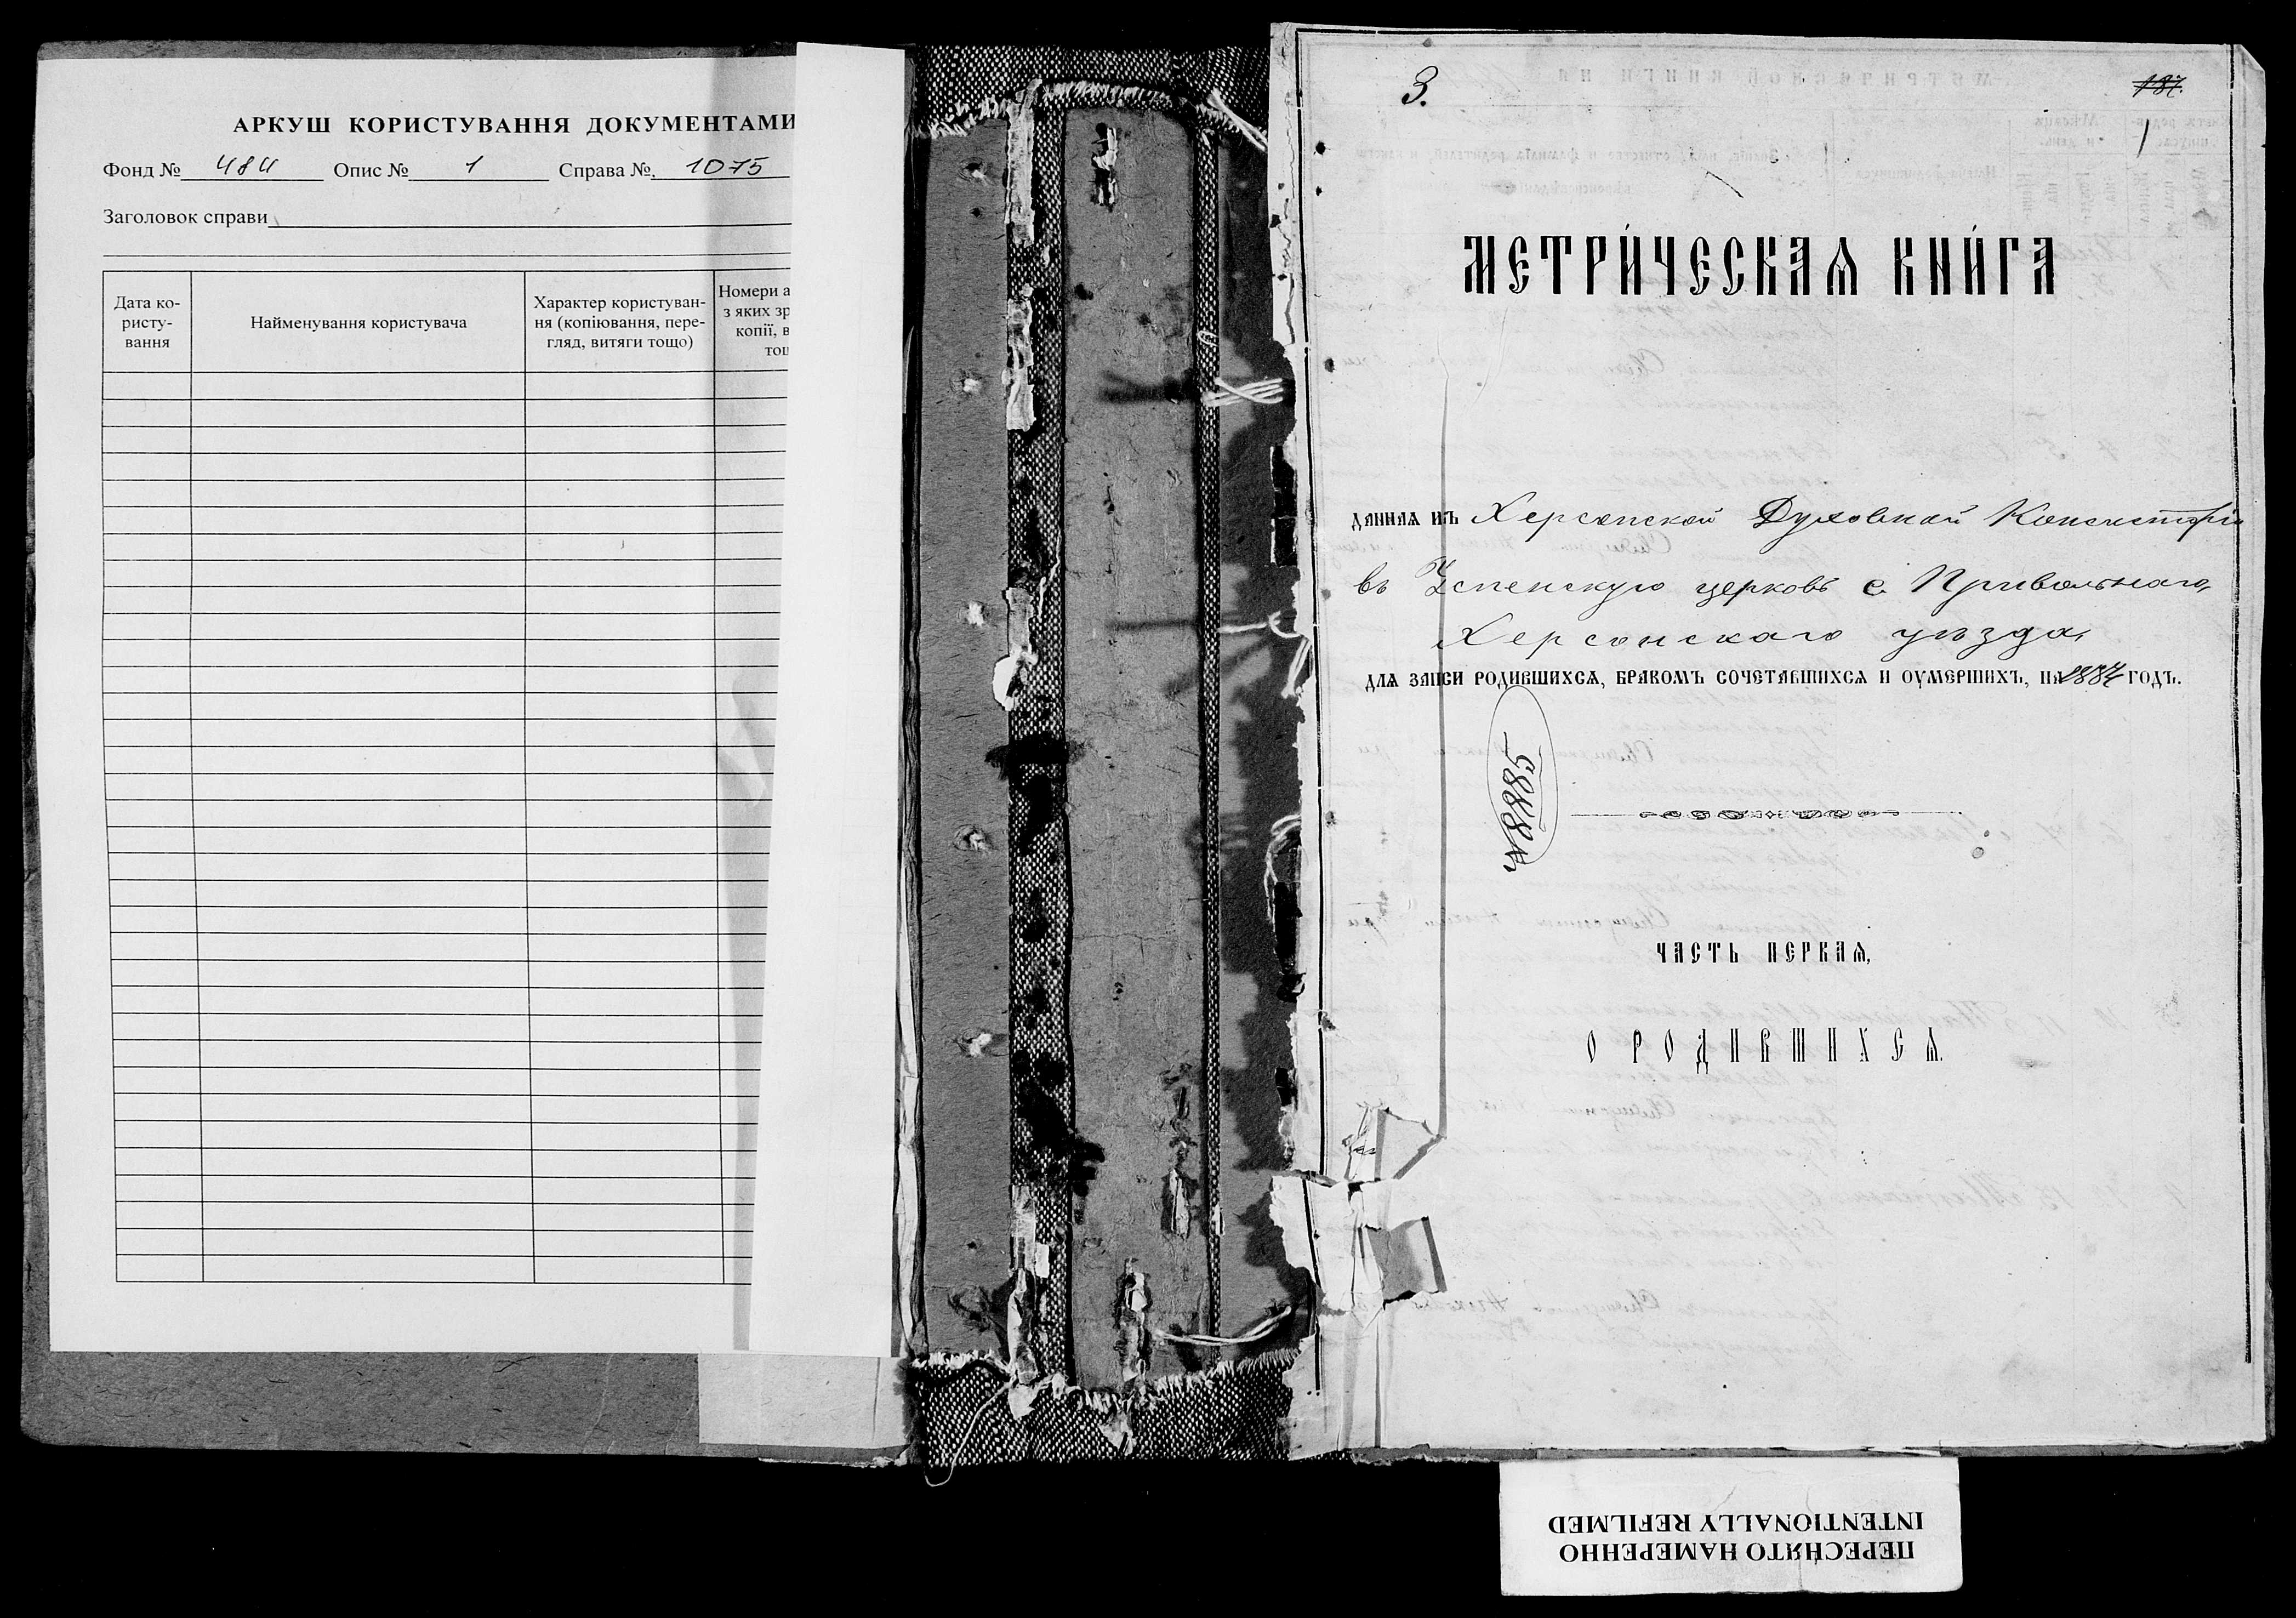 АРКУШ КОРИСТУВАННЯ ДОКУМЕНТАМИ
Фонд № 484 Опис № 1 Справа № 1075
Заголовок справи
Дата ко-
ристу-
вання
Найменування користувача
Характер користуван-
ня (копіювання, пере-
гляд, витяги тощо)
Номери а
з яких зр
копії, в
тощ
3.
187.
1
МЕТРИ́ЧЕСКАѦ КНИ́ГА
даннаѧ изъ Херсонской Духовной Консисторіи
въ Успенскую церковь с. Привольнаго,
Херсонскаго уѣзда,
длѧ записи родившихсѧ, бракомъ сочетавшихсѧ и оумершихъ, на 1884 годъ.
ЧАСТЬ ПЕРВАѦ,
О РОДИВШИХСѦ.
ПЕРЕСНЯТО НАМЕРЕННО
INTENTIONALLY REFILMED